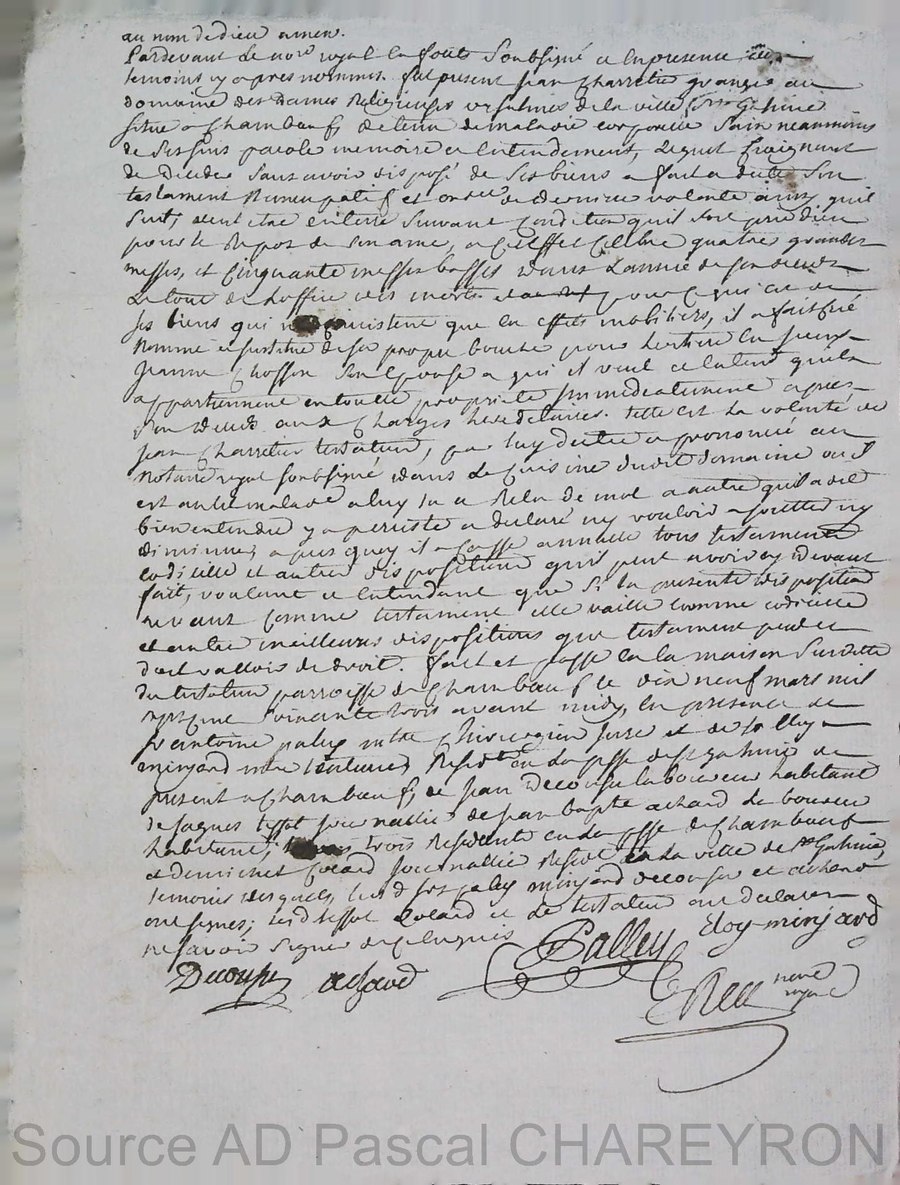 au nom de dieu amen.
Pardevant le no.re royal en forêts soubsigné et en presence des
temoins cy apres nommés. fut present jean Charretier granger au
domaine des dames Religieuses ursulines de la ville St Galmié
situé a Chambœuf, detenu de maladie corporelle sain neanmoins
de ses sens parole memoire et entendement, Lequel craignant
de deceder sans avoir disposé de ses biens a fait a dicté son
testament nuncupatif et ordce de derniere volonté ainsy quil
suit, veut etre enterré suivant condition quil soit prié dieu
pour le repos de son ame, a cet effet celebré quatre grandes
messes, et Cinquante messes basses dans Lannée de son deces
Le tout de Loffice des morts pour ce qui est de
ses biens qui ne consistent que en effets mobiliers, il a fait créé
nommé et institué de sa propre bouche pour heritiere
jeanne Chosson son epouse a qui il veut et entent quils
appartiennent en toutte propriété immediatement apres
son deces aux Charges hereditaires. telle est la volonté de
jean Charretier testateur, par luy dictée et prononcé au
notaire royal soubsigné dans la Cuisine dudit domaine ou il
est malade a luy lu et relu de mot a autre quil a dit
bien entendre y a persisté a declaré ny vouloir ajoutter ny
diminuer, apres quoy il a cassé annullé tous testaments
codicille et autres dispositions quil peut avoir cy devant
fait, voulant et entendant que si la presente disposition
ne vaut comme testament elle vaille comme codicille
et autres meilleures dispositions que testament peut et
doit valloir de droit. fait et passé en la maison surditte
du testateur parroisse de Chambœuf le dix neuf mars mil
sept cent soixante trois avant midy, en presence de
sr antoine paley mtre Chirurgien juré et de Eloy
minjard mtre Residts en la psse de st galmié de
present a Chambœuf, de jean Decouse laboureur habitant
de jaques tissot journallier de jean bapte achard laboureur
habitant, trois Residents en la psse de Chambœuf
et de michel Colard journallier Residt en la ville de St Galmié,
temoins desquels, lesd srs paley minjard decouse et achard
ont signés; lesd tissot Colard et le testateur ont declaré
ne savoir signer de ce enquis
Palley Eloy minjard
Decouse achard
Rée
notre
royal
Source AD Pascal CHAREYRON